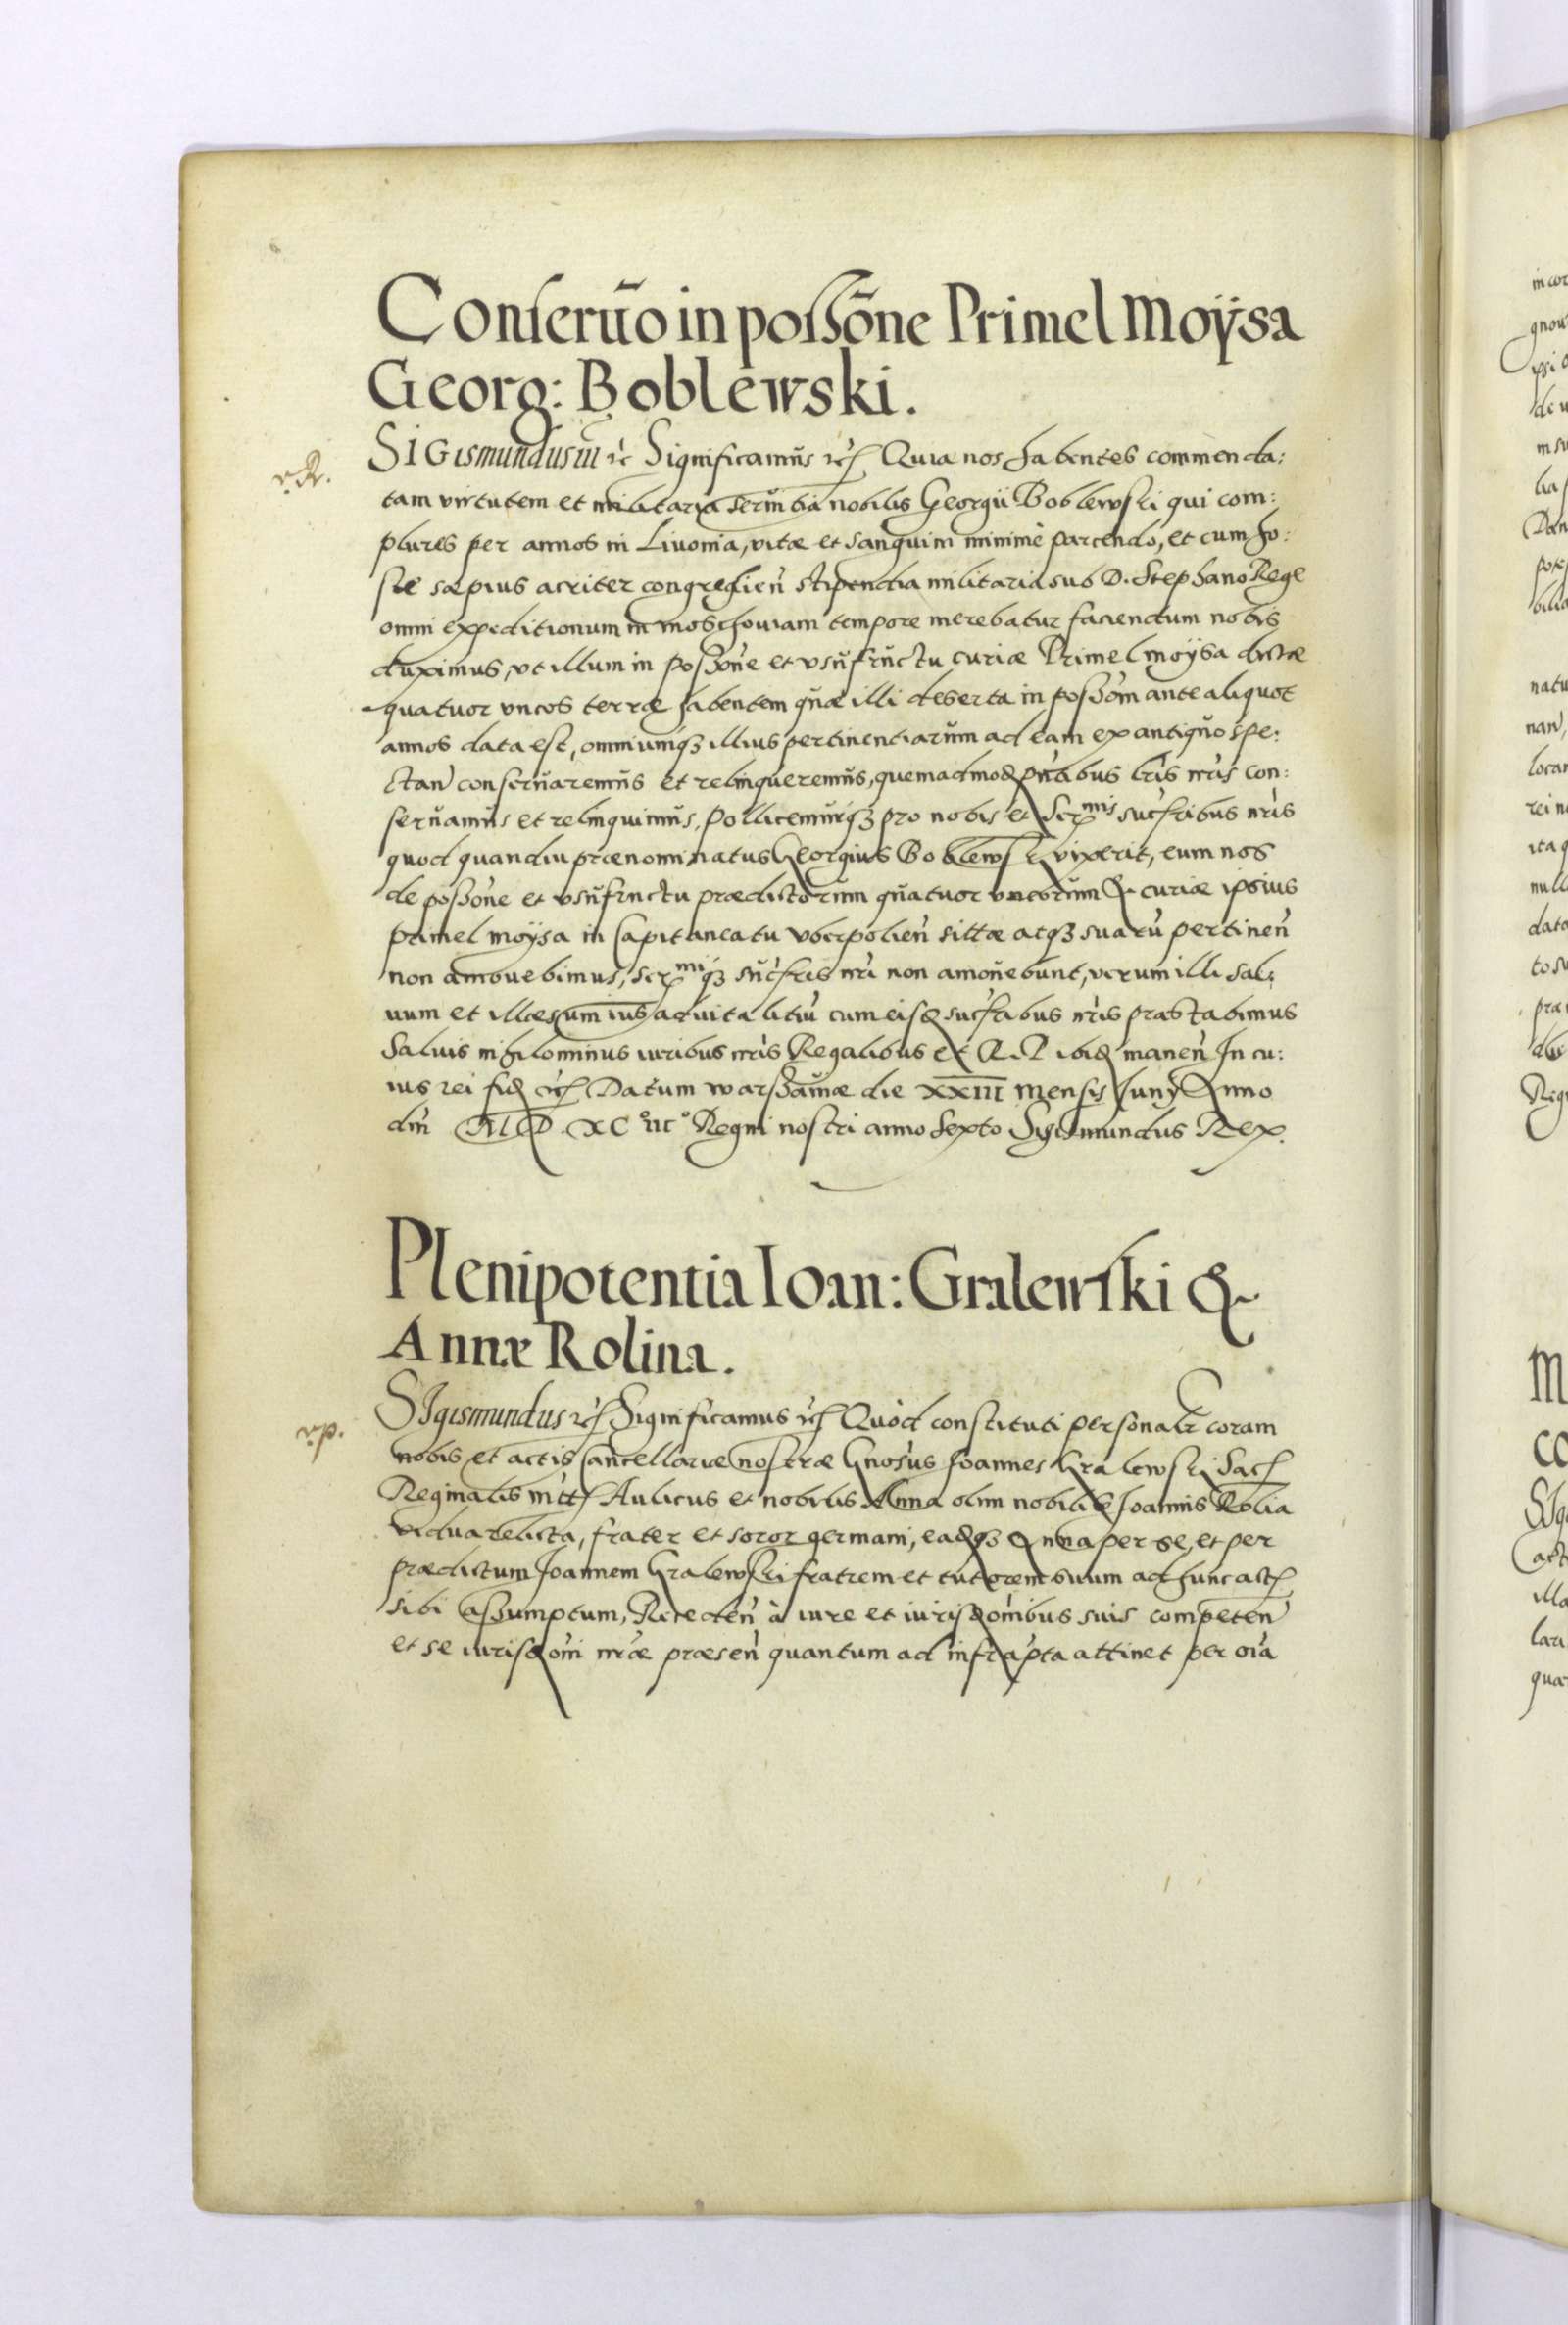 Conseru̅o in possōne Primel Moÿsa
Georg: Boblewski.
SIGismundus iii etc Significamus etc Quia nos habentes commenda:
tam virtutem et militaria seruitia nobilis Georgii Boblewski qui com:
plures per annos in Liuonia, vitæ et sanguini minimè parcendo, et cum ho:
ste sæpius acriter congredien̄ stipendia militaria sub D. Stephano Rege
omni expeditionum in moschouiam tempore merebatur faciendum nobis
duximus, vt illum in possōne et vsufructu curiæ Primel moÿsa dictæ
quatuor vncos terræ habentem quæ illi deserta in possōm ante aliquot
annos data est, omniumq̃ illius pertinentiarum ad eam ex antiquo spe:
ctan̄ conseruaremus et relinqueremus, quemadmod pn̄tibus lr̄is nr̄is con:
seruamus et relinquimus. Pollicemurq̃ pro nobis et Ser^mis succ̄ribus nr̄is
quod quandiu prænominatus Georgius Boblewski vixerit, eum nos
de possōne et vsufructu prædictorum quatuor vncorum & curiæ ipsius
primel moÿsa in Capitaneatu vberpolien̄ sittæ atq̃ suarū pertinen̄
non amouebimus, ser^miq̃ succ̄res nr̄i non amouebunt, verum illi sal:
uum et illæsum ius aduitalitiū cum eisd succ̄ribus nr̄is præstabimus
Saluis nihilominus iuribus nr̄is Regalibus et R.P. ibid manen̄ In cu:
ius rei fid etc Datum warssauiæ die XXIII mensis Iunÿ Anno
dn̄i M D XC° iii° Regni nostri anno sexto Sigismundus Rex.
Plenipotentia Ioan: Gralewski &
Annæ Rolina.
SIgismundus etc Significamus etc Quòd constituti personalr̄ coram
nobis et actis Cancellariæ nostræ Gnōsus Ioannes Gralewski Sac
Reginalis mtt Aulicus et nobilis Anna olim nobilis Ioannis Rolia
vidua relicta, frater et soror germani, eadq̃ Anna per se, et per
prædictum Ioannem Gralewski fratrem et tutorem suum ad hunc act
sibi assumptum, Receden̄ à iure et iurisdōnibus suis competen̄
et se iurisdōni nr̄æ præsen̄ quantum ad infrap̄ta attinet per oīa